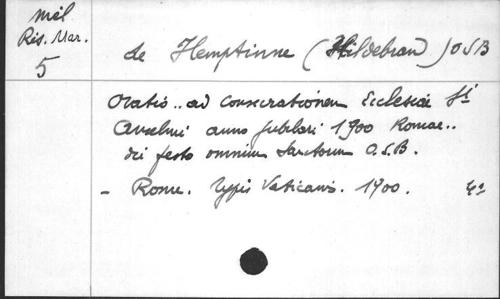 Mél
Ris. Mar.
5
de Hemptinne (Hildebran) O S B
Oratio .. ad consecrationem Ecclesiae Sti
Anselmi anno jubilari 1900 Romae ..
die festo omnium Sanctorum O.S.B.
- Rome. Typis Vaticanis. 1900. 4º